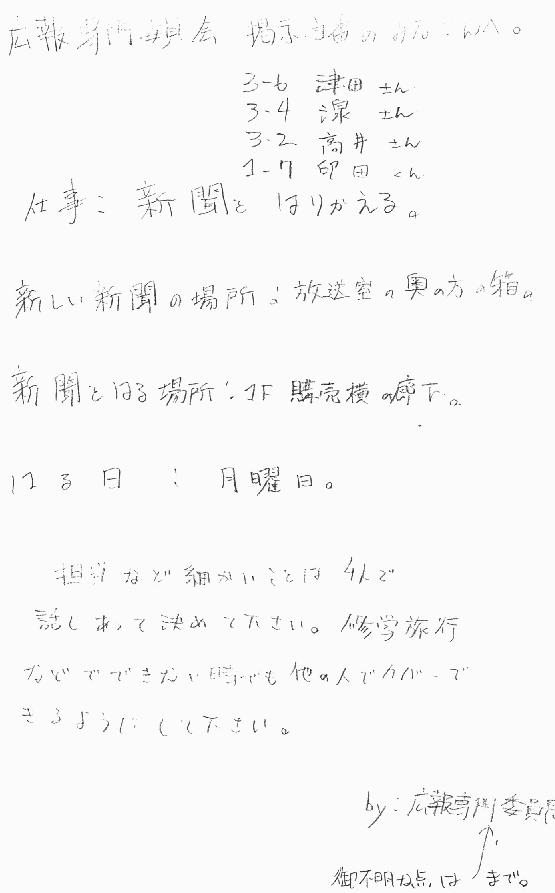 広報専門委員会 掲示当番のみなさんへ。
3-6 津田さん
3-4 湶さん
3-2 高井さん
1-7 印田くん
仕事：新聞をはりかえる。
新しい新聞の場所：放送室の奥の方の箱。
新聞をはる場所：1F 購売横の廊下。
はる日：月曜日。
担当など細かいことは4人で
話しあって決めて下さい。修学旅行
などでできない時でも他の人でカバーで
きるようにして下さい。
by：広報専門委員長
御不明な点は まで。